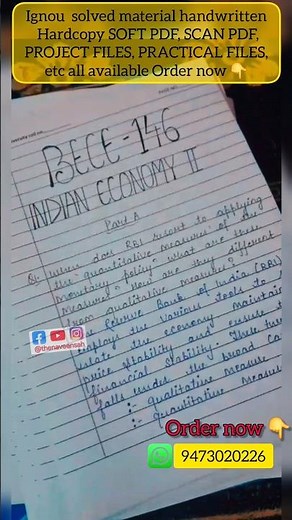 Ignou solved material handwritten
Hardcopy SOFT PDF, SCAN PDF,
PROJECT FILES, PRACTICAL FILES,
etc all available Order now 👇
BECE-146
INDIAN ECONOMY II
Part A
Q1 When does RBI resort to applying
the "quantitative measures" of the
monetary policy? what are these
measures? How are they different
from qualitative measures?
Reserve Bank of India (RBI)
employs the various tools to
the economy maintain
price stability and ensure
financial stability. These
falls under the broad
: qualitative measure
: quantitative measure
@thenaveensah
Order now 👇
9473020226